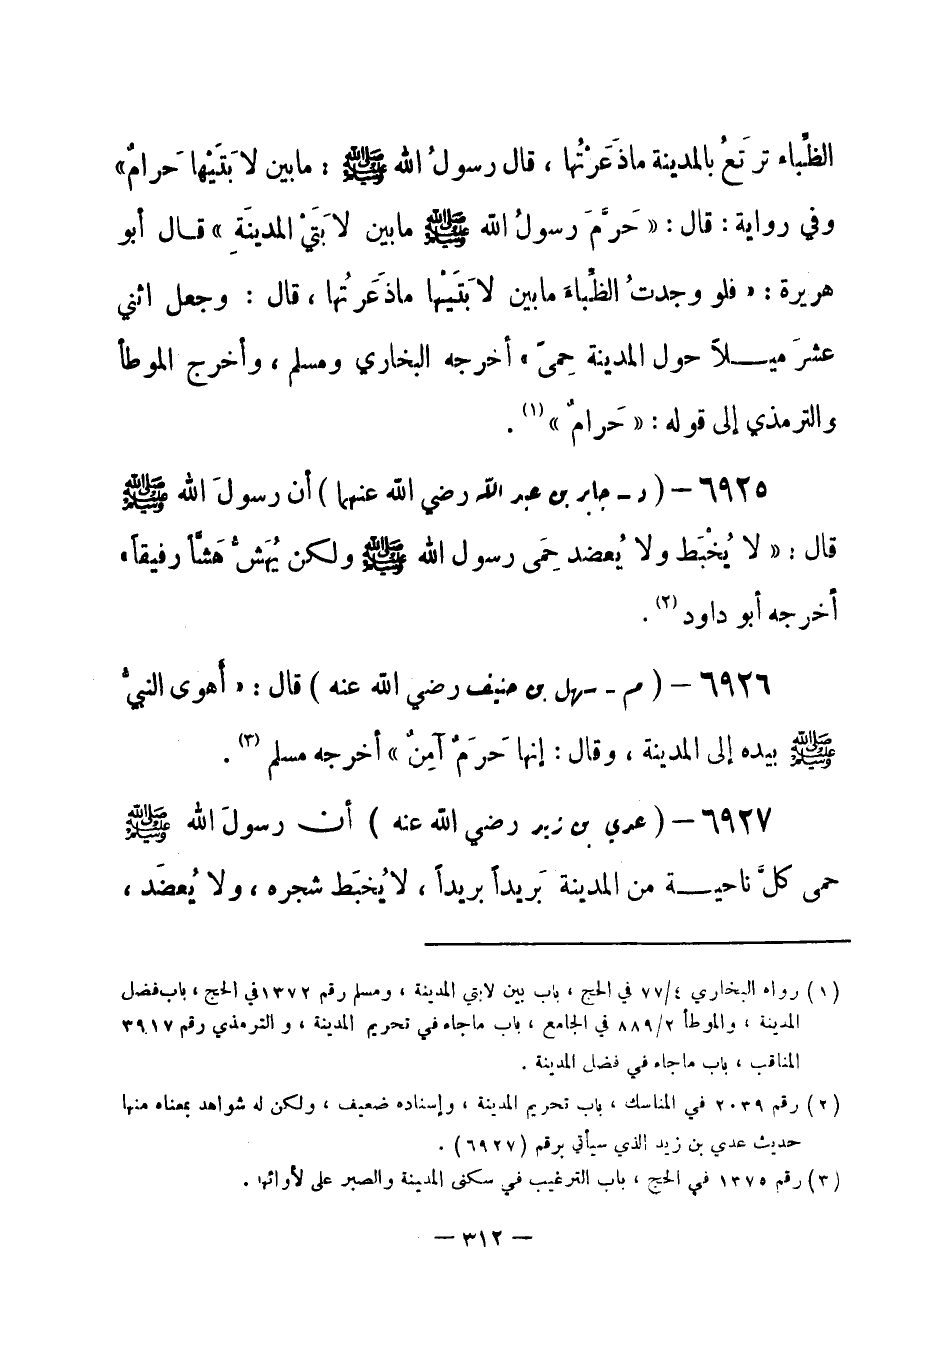 الظِّباء تَرتَعُ بالمدينة ماذَعَرْتُها ، قال رسولُ الله ﷺ : مابين لابَتَيْها حَرامٌ»
وفي رواية : قال : « حَرَّمَ رسولُ الله ﷺ مابين لابَتَيْ المدينَةِ » قال أبو
هريرة : « فلو وجدتُ الظِّباءَ مابين لابَتَيْها ماذَعَرتُها ، قال : وجعل اثني
عشرَ ميلاً حول المدينة حِمىً » أخرجه البخاري ومسلم ، وأخرج الموطأ
والترمذي إلى قوله : « حَرامٌ » (١) .
٦٩٢٥ – ( د – جابر بن عبد الله رضي الله عنهما ) أن رسولَ الله ﷺ
قال : « لا يُخْبَط ولا يُعضد حِمَى رسول الله ﷺ ولكن يُهَشُّ هَشّاً رفيقاً »
أخرجه أبو داود (٢) .
٦٩٢٦ – ( م – سهل بن حنيف رضي الله عنه ) قال : « أهوى النبيُّ
ﷺ بيده إلى المدينة ، وقال : إنها حَرَمٌ آمِنٌ » أخرجه مسلم (٣) .
٦٩٢٧ – ( عدي بن زيد رضي الله عنه ) أن رسولَ الله ﷺ
حمى كلَّ ناحية من المدينة بَريداً بريداً ، لايُخبَط شجره ، ولا يُعضَد ،
(١) رواه البخاري ٤/٧٧ في الحج ، باب بين لابتي المدينة ، ومسلم رقم ١٣٧٢في الحج ، باب فضل
المدينة ، والموطأ ٢/٨٨٩ في الجامع ، باب ماجاء في تحريم المدينة ، والترمذي رقم ٣٩١٧
المناقب ، باب ماجاء في فضل المدينة .
(٢) رقم ٢٠٣٩ في المناسك ، باب تحريم المدينة ، وإسناده ضعيف ، ولكن له شواهد بمعناه منها
حديث عدي بن زيد الذي سيأتي برقم (٦٩٢٧) .
(٣) رقم ١٣٧٥ في الحج ، باب الترغيب في سكنى المدينة والصبر على لأوائها .
– ٣١٢ –